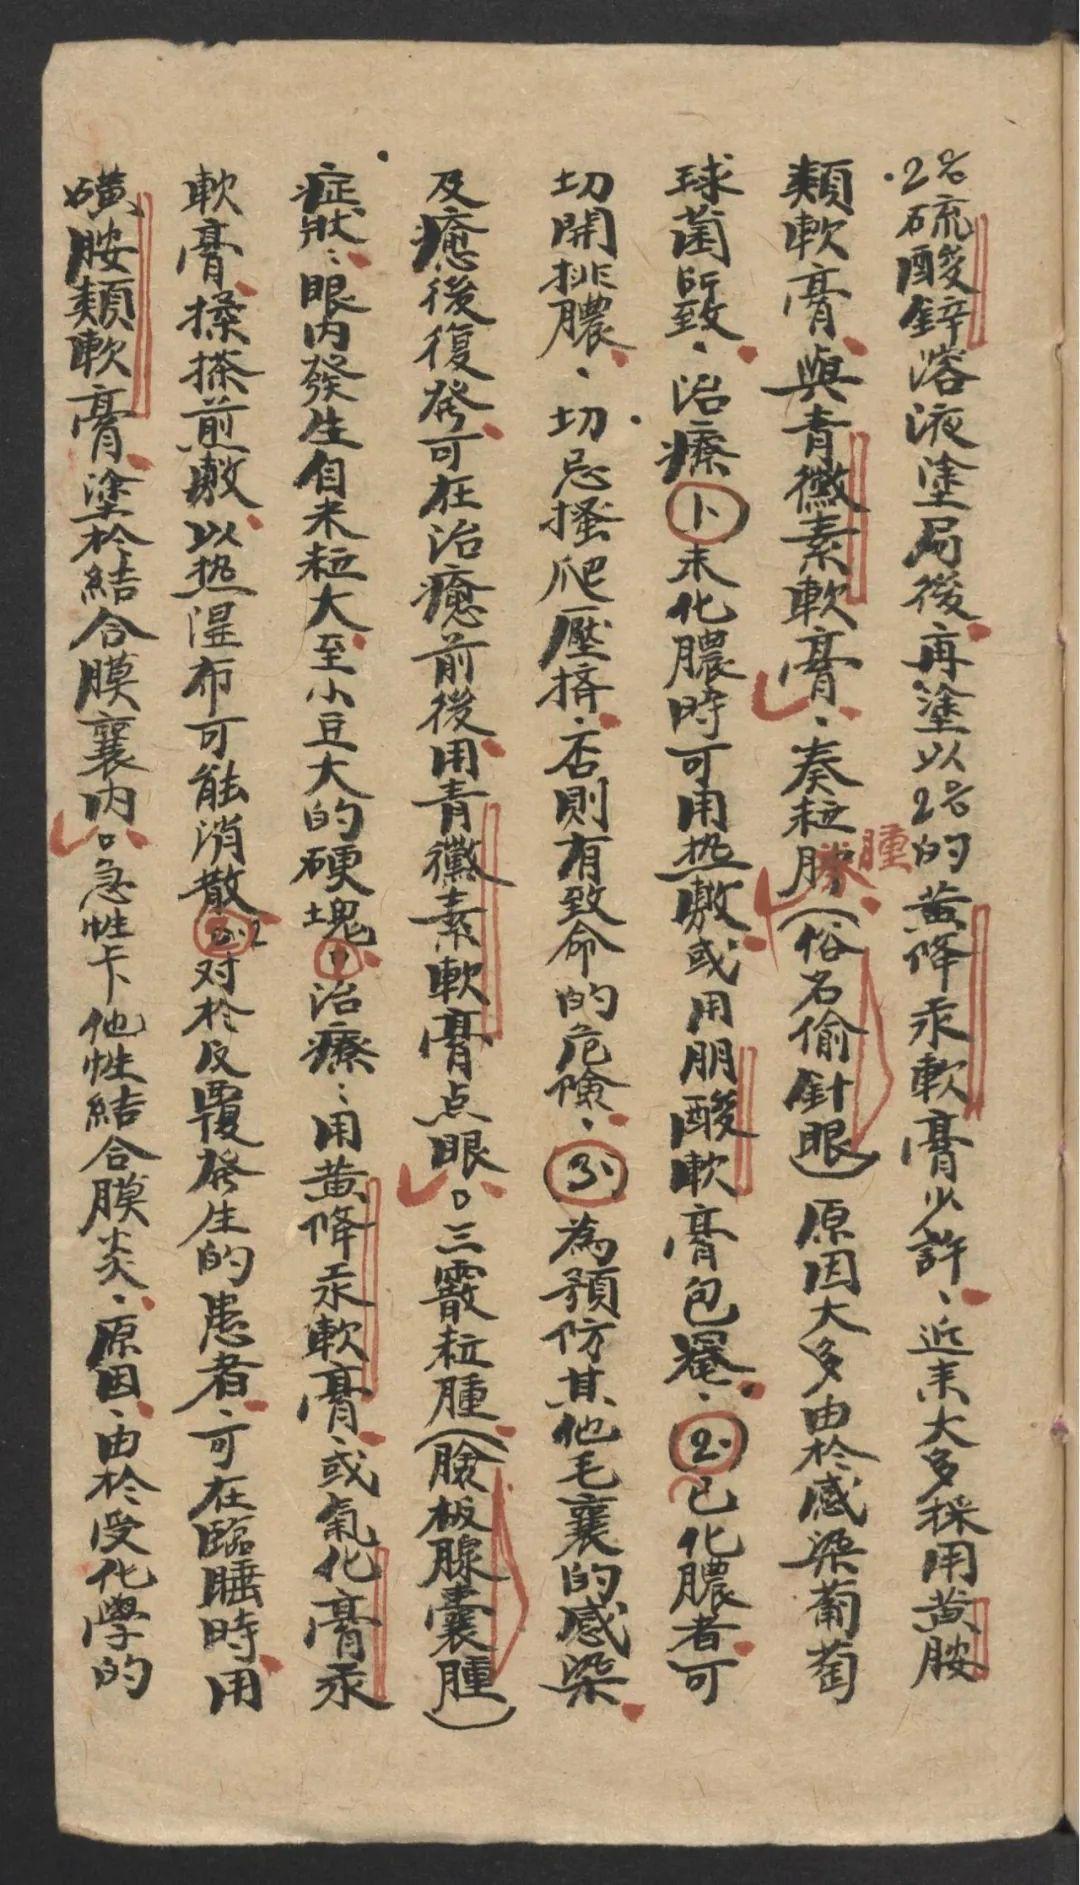 2%硫酸鋅溶液塗局後再塗以2%的黄降汞軟膏少許、近来大多採用黄胺
類軟膏與青黴素軟膏、麥粒腫(俗名偷針眼)原因大多由於感染葡萄
球菌所致、治療①未化膿時可用热敷或用朋酸軟膏包罨、②已化膿者可
切開排膿、切忌搔爬壓挤、否則有致命的危險、③為預防其他毛襄的感染
及癒後復發可在治癒前後用青黴素軟膏点眼。三霰粒腫(臉板腺囊腫)
症狀:眼内發生自米粒大至小豆大的硬塊①治療:用黄降汞軟膏或氣化膏汞
軟膏搽搽煎敷以热湿布可能消散②对於反覆發生的患者、可在臨睡時用
磺胺類軟膏塗於結合膜襄内。急性卡他性結合膜炎、原因、由於受化學的